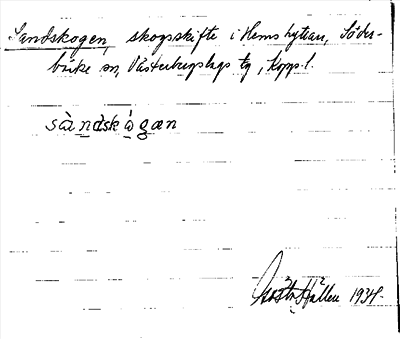 Sandskogen, skogsskifte i Hemshyttan, Söder-
bärke sn, Västerbergslags tg, Kopp. l.
sàndskágæn
Gösta Hållen 1934.